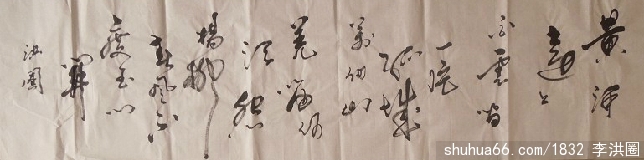 黄河
远上
白云间
一片
孤城
万仞山
羌笛何
须怨
杨柳
春风不
度玉门
關
洪圈
shuhua66.com/1832 李洪圈